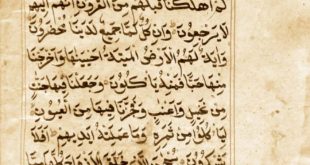 كم اهلكنا قبلهم من القرون انهم اليهم
لا يرجعون وان كل لما جميع لدينا محضرون
واية لهم الارض الميتة احييناها واخرجنا
منها حبا فمنه ياكلون وجعلنا فيها جنات
من نخيل واعناب وفجرنا فيها من العيون
لياكلوا من ثمره وما عملته ايديهم افلا